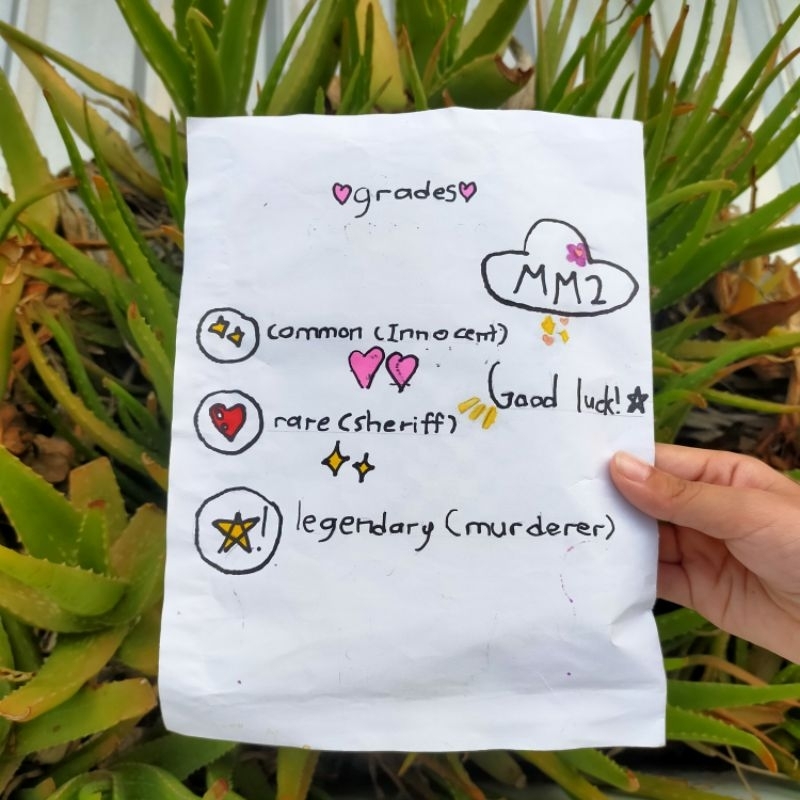 grades
MM2
common (Innocent)
Good luck!
rare (sheriff)
! legendary (murderer)